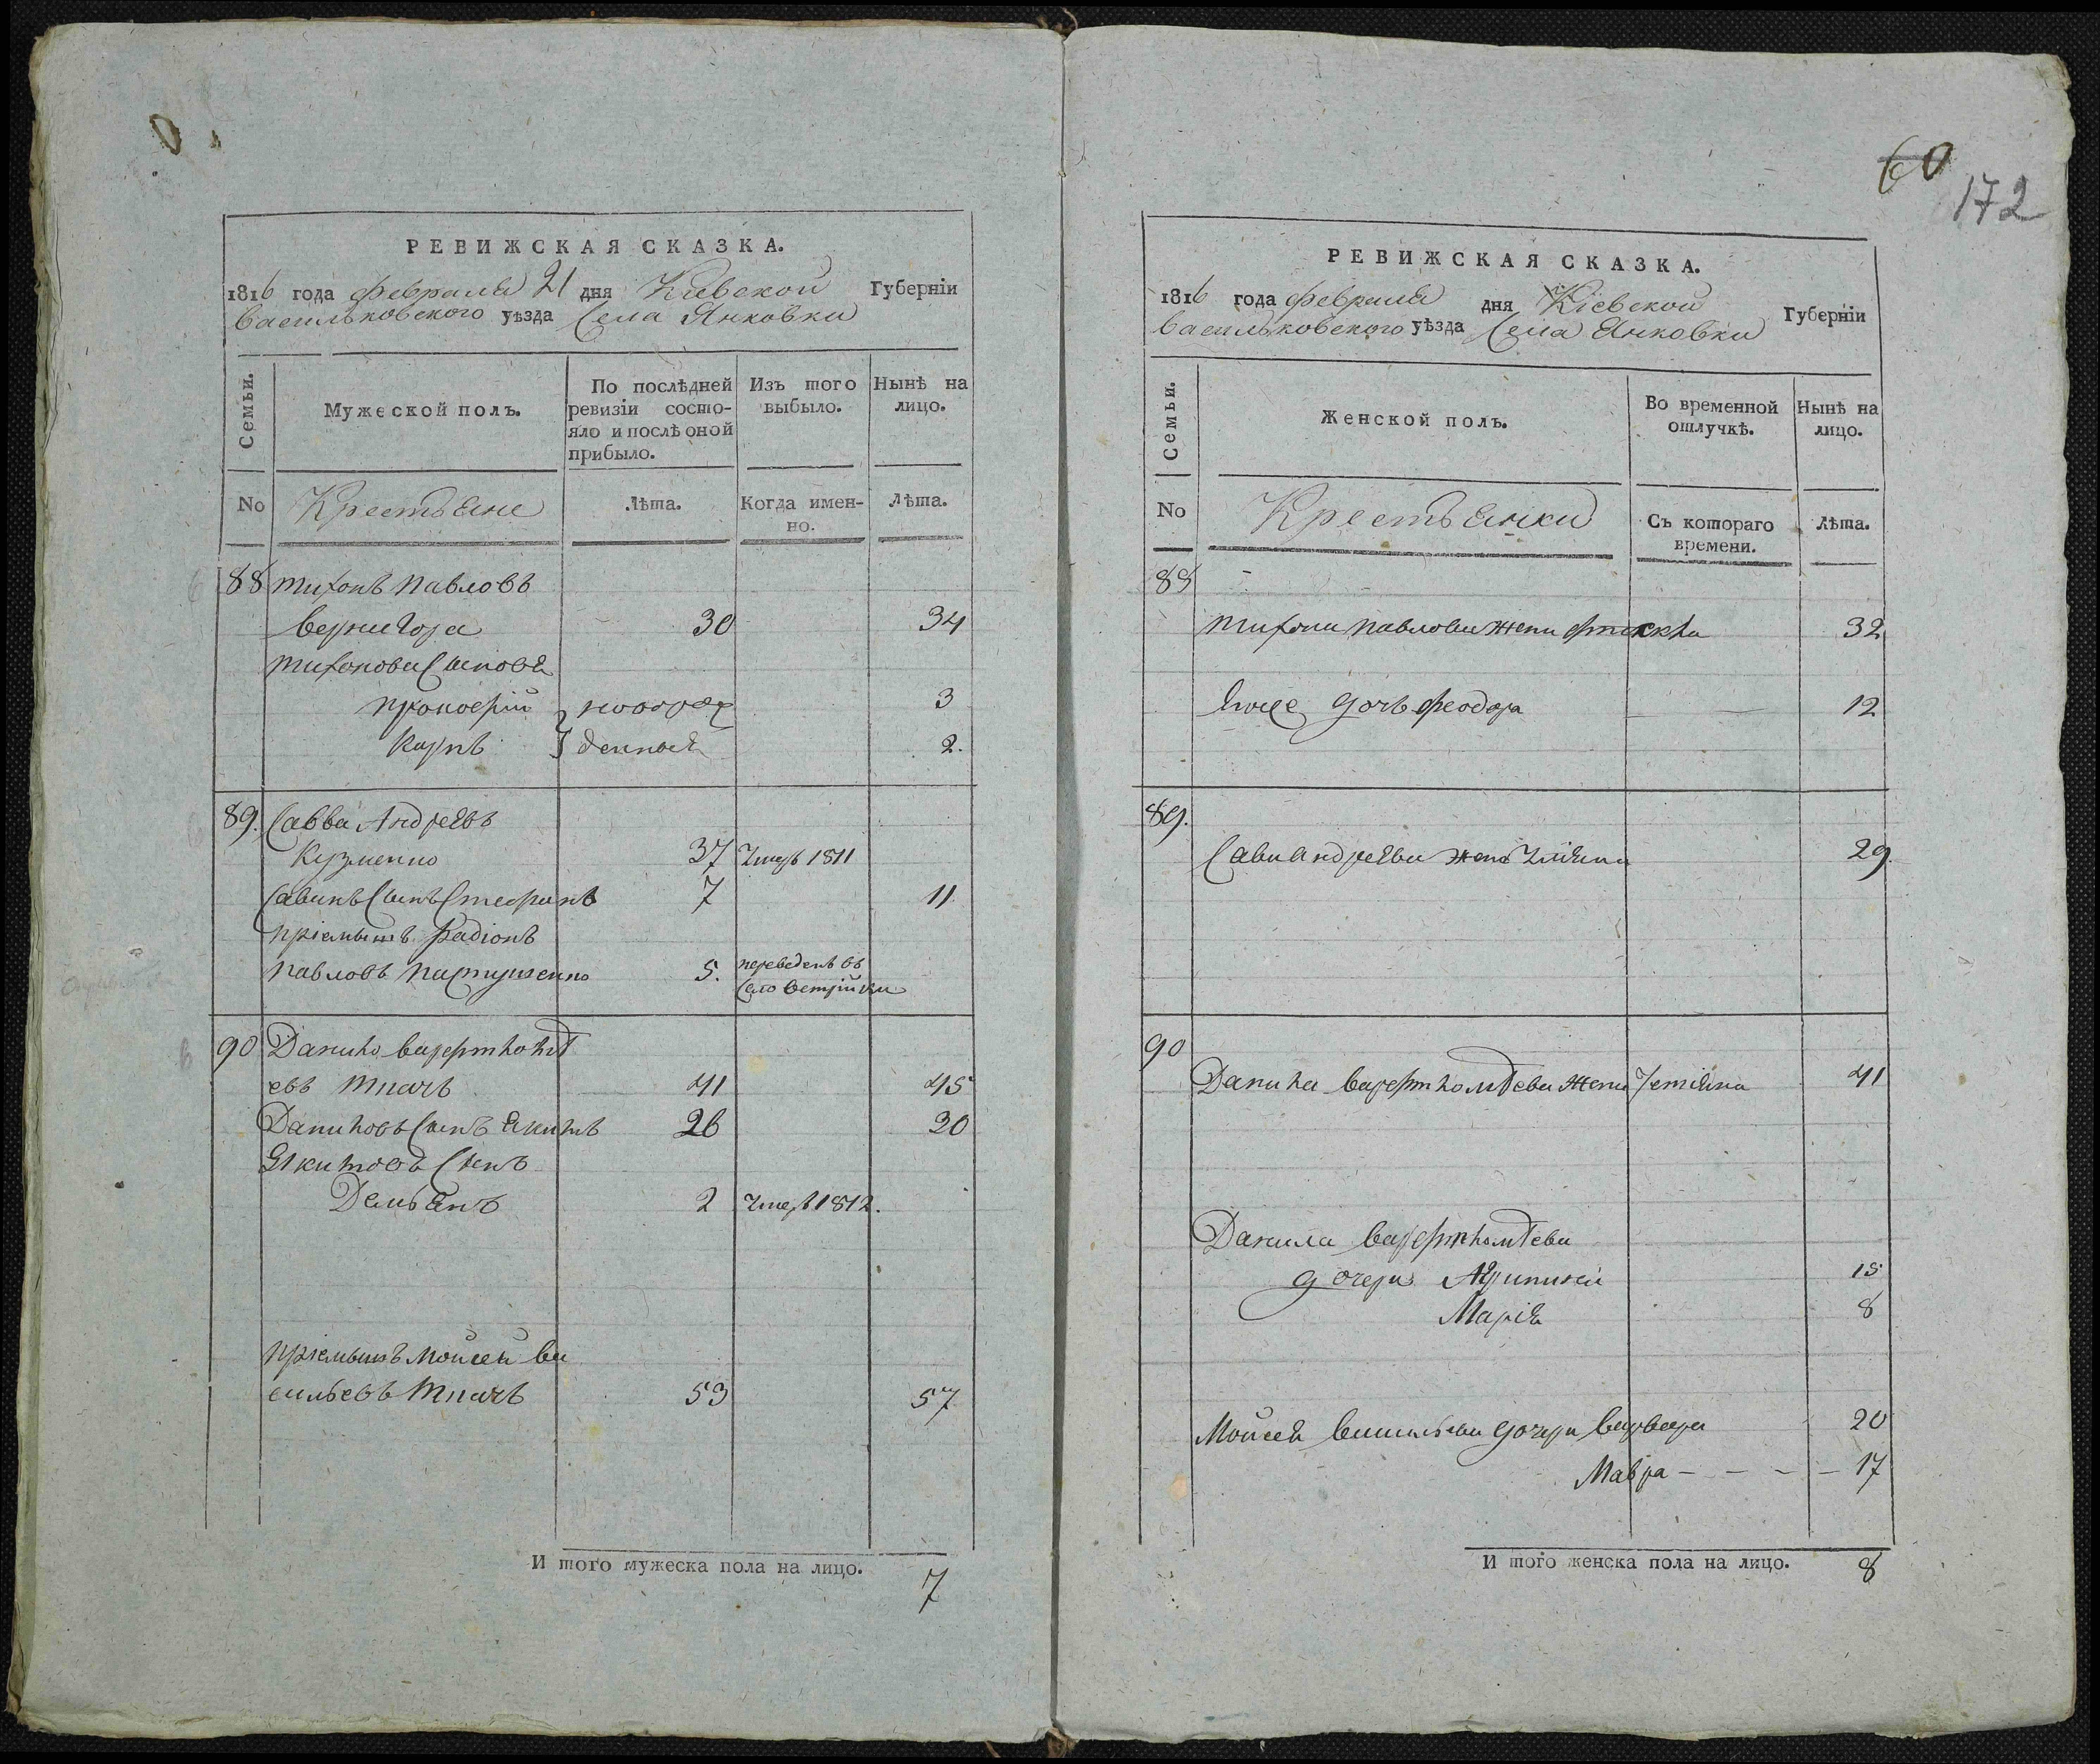 60
172
РЕВИЖСКАЯ СКАЗКА.
1816 года февраля 21 дня Киевской Губерніи
Васильковского уѣзда Села Янковки
Семьи.
Мужеской полъ.
По послѣдней ревизіи состо-
яло и послѣ оной прибыло.
Изъ того выбыло.
Нынѣ на лицо.
No
Крестьяне
Лѣта.
Когда имен-
но.
Лѣта.
88 Тихонъ Павловъ
Вернигора 30 34
Тихонови Синовя
Прокофій новорож 3
Карпъ денныя 2.
89. Савва Андреевъ
Кузменко 37 Умеръ 1811
Савинъ Синъ Стефанъ 7 11
Пріемышъ Радіонъ
Павловъ 5. переведенъ въ
Село
90 Данило
евъ Ткачъ 41 45
Даниловъ Синъ Якимъ 26 30
Якимовъ Синъ
Демьянъ 2 Умеръ 1812.
Пріемышъ Мойсей Ва
сильевъ Ткачъ 53 57
И того мужеска пола на лицо. 7
РЕВИЖСКАЯ СКАЗКА.
1816 года февраля дня Кіевской Губерніи
Васильковского уѣзда Села Янковки
Семьи.
Женской полъ.
Во временной отлучкѣ.
Нынѣ на лицо.
No
Крестьянки
Съ котораго времени.
Лѣта.
88
Тихона Павлова жена 32
Евоже дочь Феодора 12
89.
Сави Андреева жена Улияна 29.
90
Данила жена 41
Данила
дочери 15
Марія 8
Мойсея Васильева дочери Варвара 20
Мавра - - - - 17
И того женска пола на лицо. 8